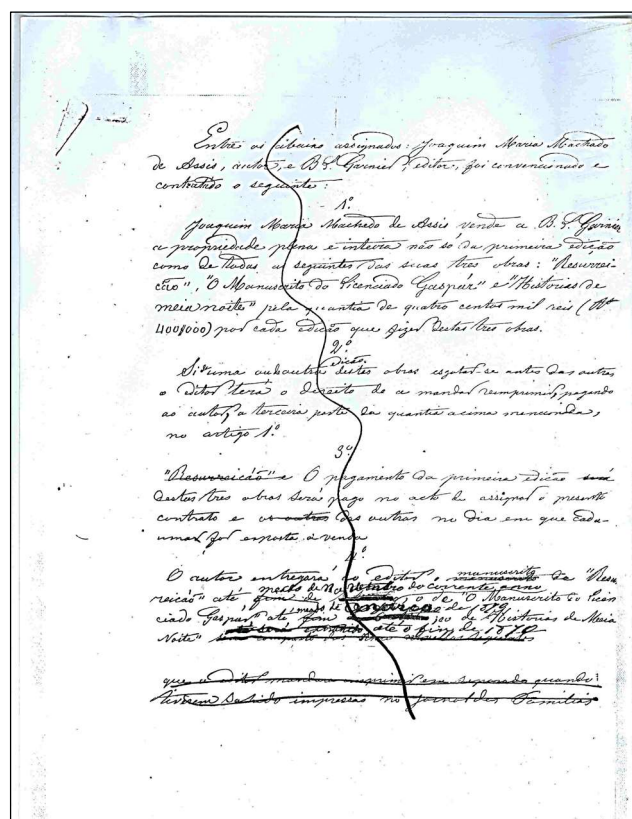 Entre os abaixo assignados: Joaquim Maria Machado
de Assis, autor, e B. L. Garnier, editor, foi convencionado e
contratado o seguinte:
1º
Joaquim Maria Machado de Assis vende a B. L. Garnier
a propriedade plena e inteira não só da primeira edição
como de todas as seguintes das suas tres obras: "Resurrei-
ção", "O Manuscrito do Licenciado Gaspar" e "Historias de
meia noite" pela quantia de quatro centos mil reis (Rs
400$000) por cada edição que fizer destas tres obras.
2º
edição
Si uma ou outra destes obras esgotar-se antes das outras
o editor terá o direito de a mandar reimprimir, pagando
ao autor, a terceira parte da quantia acima mencionada,
no artigo 1º
3º
"Resurreição" e O pagamento da primeira edição será
destas tres obras será pago no acto de assignar o presente
contrato e os outros das outras no dia em que cada
uma for exposta á venda
4º
manuscrito
O autor entregará ao editor o manuscrito de "Resu-
meado de Novembro do corrente anno
rreição" até fim de o de "O Manuscrito do Licen-
ciado Gaspar" até fim de março de 1870, e de Historias de Meia
Noite" até o fim de 1870
que o editor mandará imprimir em separado quando
tiverem sahido impressas no Jornal das Familias